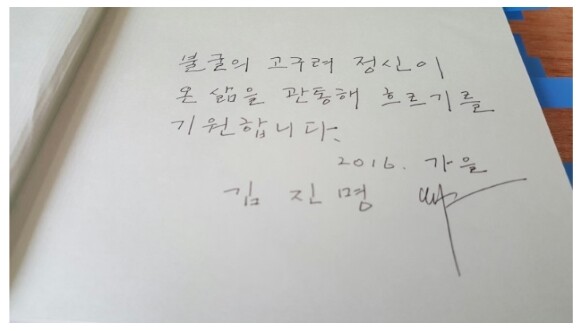 불굴의 고구려 정신이
온 삶을 관통해 흐르기를
기원합니다.
2016. 가을
김 진 명